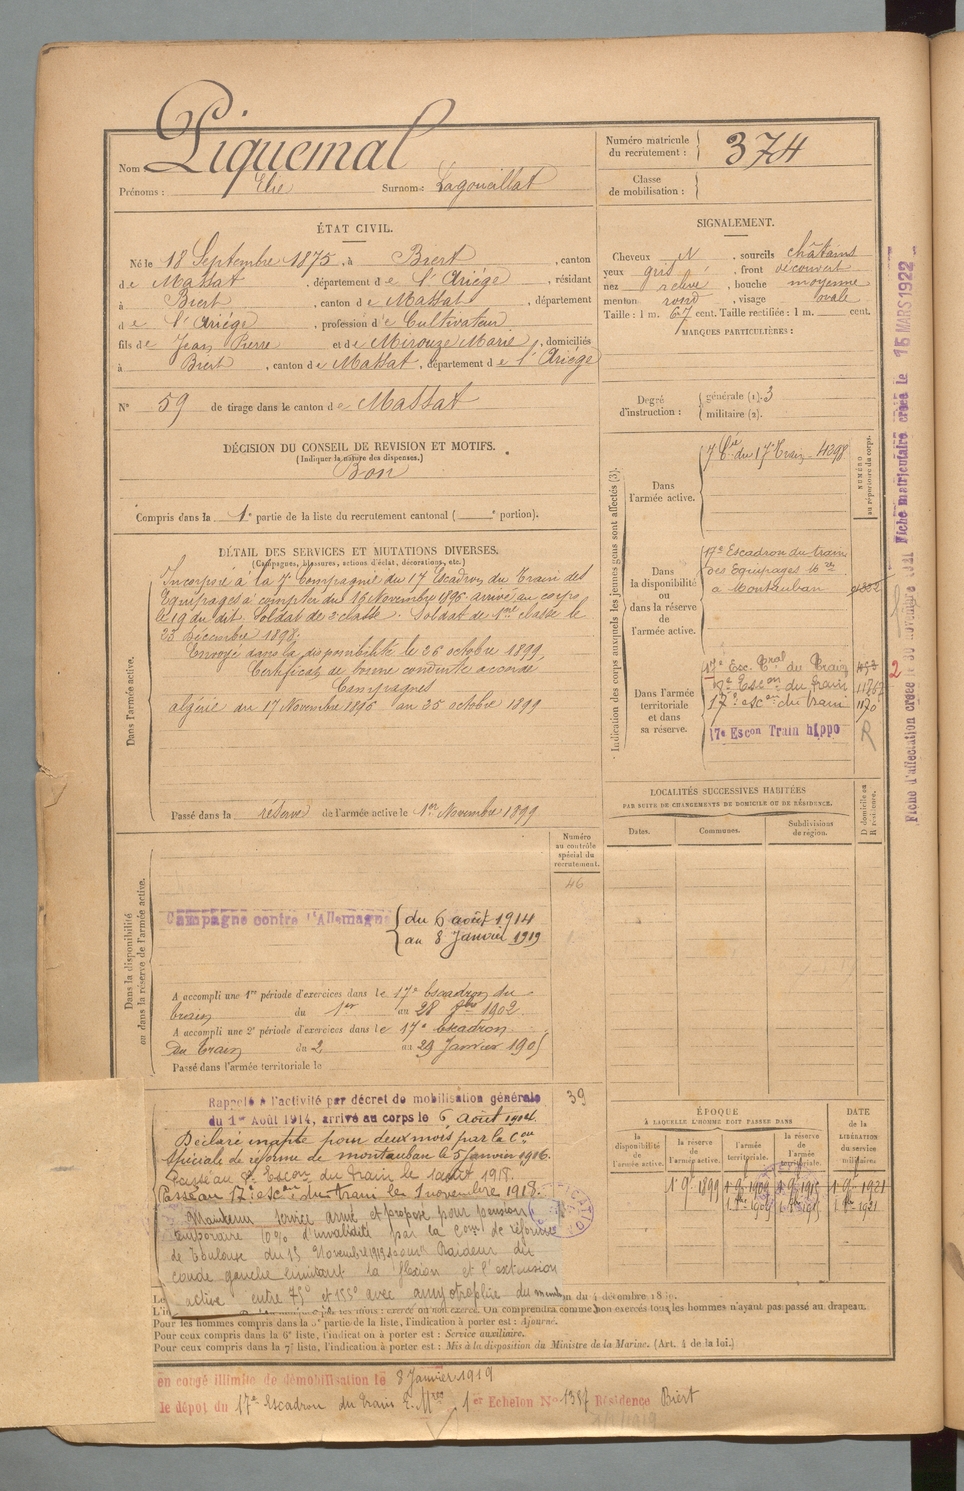 Nom Piquemal
Prénoms : Elie Surnoms : Lagouaillat
Numéro matricule du recrutement : 374
Classe de mobilisation :
ÉTAT CIVIL.
Né le 18 Septembre 1875, à Biert, canton
de Massat, département de l'Ariége, résidant
à Biert, canton de Massat, département
de l'Ariége, profession de Cultivateur
fils de Jean Pierre et de Mirouze Marie, domiciliés
à Biert, canton de Massat, département de l'Ariége
N° 59 de tirage dans le canton de Massat
DÉCISION DU CONSEIL DE REVISION ET MOTIFS.
(Indiquer la nature des dispenses.)
Bon
Compris dans la 1e partie de la liste du recrutement cantonal ( e portion).
SIGNALEMENT.
Cheveux N, sourcils châtains
yeux gris, front découvert
nez relevé, bouche moyenne
menton rond, visage ovale
Taille : 1 m. 67 cent. Taille rectifiée : 1 m. cent.
MARQUES PARTICULIÈRES :
Degré d'instruction : générale (1). 3
militaire (2).
DÉTAIL DES SERVICES ET MUTATIONS DIVERSES.
(Campagnes, blessures, actions d'éclat, décorations, etc.)
Dans l'armée active.
Incorporé à la 7e Compagnie du 17 Escadron du Train des
Equipages à compter du 16 Novembre 1896 arrivé au corps
le 19 du dit. Soldat de 2e classe. Soldat de 1ere classe le
23 Décembre 1898.
Envoyé dans la disponibilité le 26 octobre 1899,
Certificat de bonne conduite accordé
Campagnes
Algérie du 17 Novembre 1896 au 25 octobre 1899
Passé dans la réserve de l'armée active le 1er Novembre 1899
Indication des corps auxquels les jeunes gens sont affectés (3).
NUMÉRO au répertoire du corps.
Dans l'armée active.
7 Cie du 17 Train 4398
Dans la disponibilité ou dans la réserve de l'armée active.
17e Escadron du train
des Equipages Mres
à Montauban
Dans l'armée territoriale et dans sa réserve.
17e Esc. Tral du Train
17e Escon du train
17e escon du train
17e Escon Train hippo R
LOCALITÉS SUCCESSIVES HABITÉES
PAR SUITE DE CHANGEMENTS DE DOMICILE OU DE RÉSIDENCE.
Dates. Communes. Subdivisions de région. D domicile ou R résidence.
Dans la disponibilité ou dans la réserve de l'armée active.
Numéro au contrôle spécial du recrutement.
46
Campagne contre l'Allemagne du 6 août 1914
au 8 Janvier 1919
A accompli une 1re période d'exercices dans le 17e Escadron du
train du 1er au 28 9bre 1902
A accompli une 2e période d'exercices dans le 17e Escadron
du Train du 2 au 29 Janvier 1905
Passé dans l'armée territoriale le
39
Rappelé à l'activité par décret de mobilisation générale
du 1er Août 1914, arrivé au corps le 6 Août 1914.
Déclaré inapte pour deux mois par la Con
spéciale de réforme de Montauban le 5 janvier 1916.
Passé au Escon du Train le 1 août 1918.
Passé au 17e escon du train le 1 novembre 1918.
Maintenu service armé et proposé pour pension
temporaire 10% d'invalidité par la Com de réforme
de Toulouse du 15 Novembre 1919 pour Raideur du
coude gauche limitant la flexion et l'extension
active entre 75° et 155° avec amyotrophie du membre
ÉPOQUE
À LAQUELLE L'HOMME DOIT PASSER DANS
la disponibilité de l'armée active. la réserve de l'armée active. l'armée territoriale. la réserve de l'armée territoriale.
DATE de la LIBÉRATION du service militaire.
1 9e 1899 1 9e 1909 1 9e 1915 1 9e 1921
m du 4 décembre 18
On comprendra comme non exercés tous les hommes n'ayant pas passé au drapeau.
Pour les hommes compris dans la 5e partie de la liste, l'indication à porter est : Ajourné.
Pour ceux compris dans la 6e liste, l'indication à porter est : Service auxiliaire.
Pour ceux compris dans la 7e liste, l'indication à porter est : Mis à la disposition du Ministre de la Marine. (Art. 4 de la loi.)
en congé illimité de démobilisation le 8 Janvier 1919
le dépôt du 17e Escadron du train E. Mres 1er Echelon N° 1387 Résidence Biert
Fiche d'affectation créée le 30 novembre 1921 Fiche matriculaire créée le 15 MARS 1922